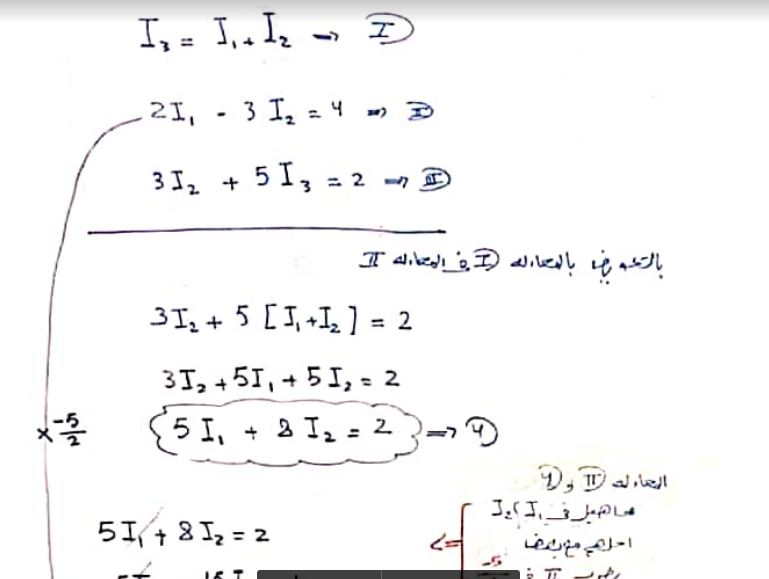 I₃ = I₁ + I₂ → Ⓘ
2I₁ - 3I₂ = 4 ⇒ Ⓘ
3I₂ + 5I₃ = 2 ⇒ ⒾⅠⅰ
بالتعويض بالمعادلة Ⓘ في المعادلة II
3I₂ + 5 [I₁ + I₂] = 2
3I₂ + 5I₁ + 5I₂ = 2
× -5/2
5I₁ + 8I₂ = 2 ⇒ ④
المعادلة II و ④
مجاهيل في I₁ I₂
5I₁ + 8I₂ = 2
احلهم مع بعض
-5